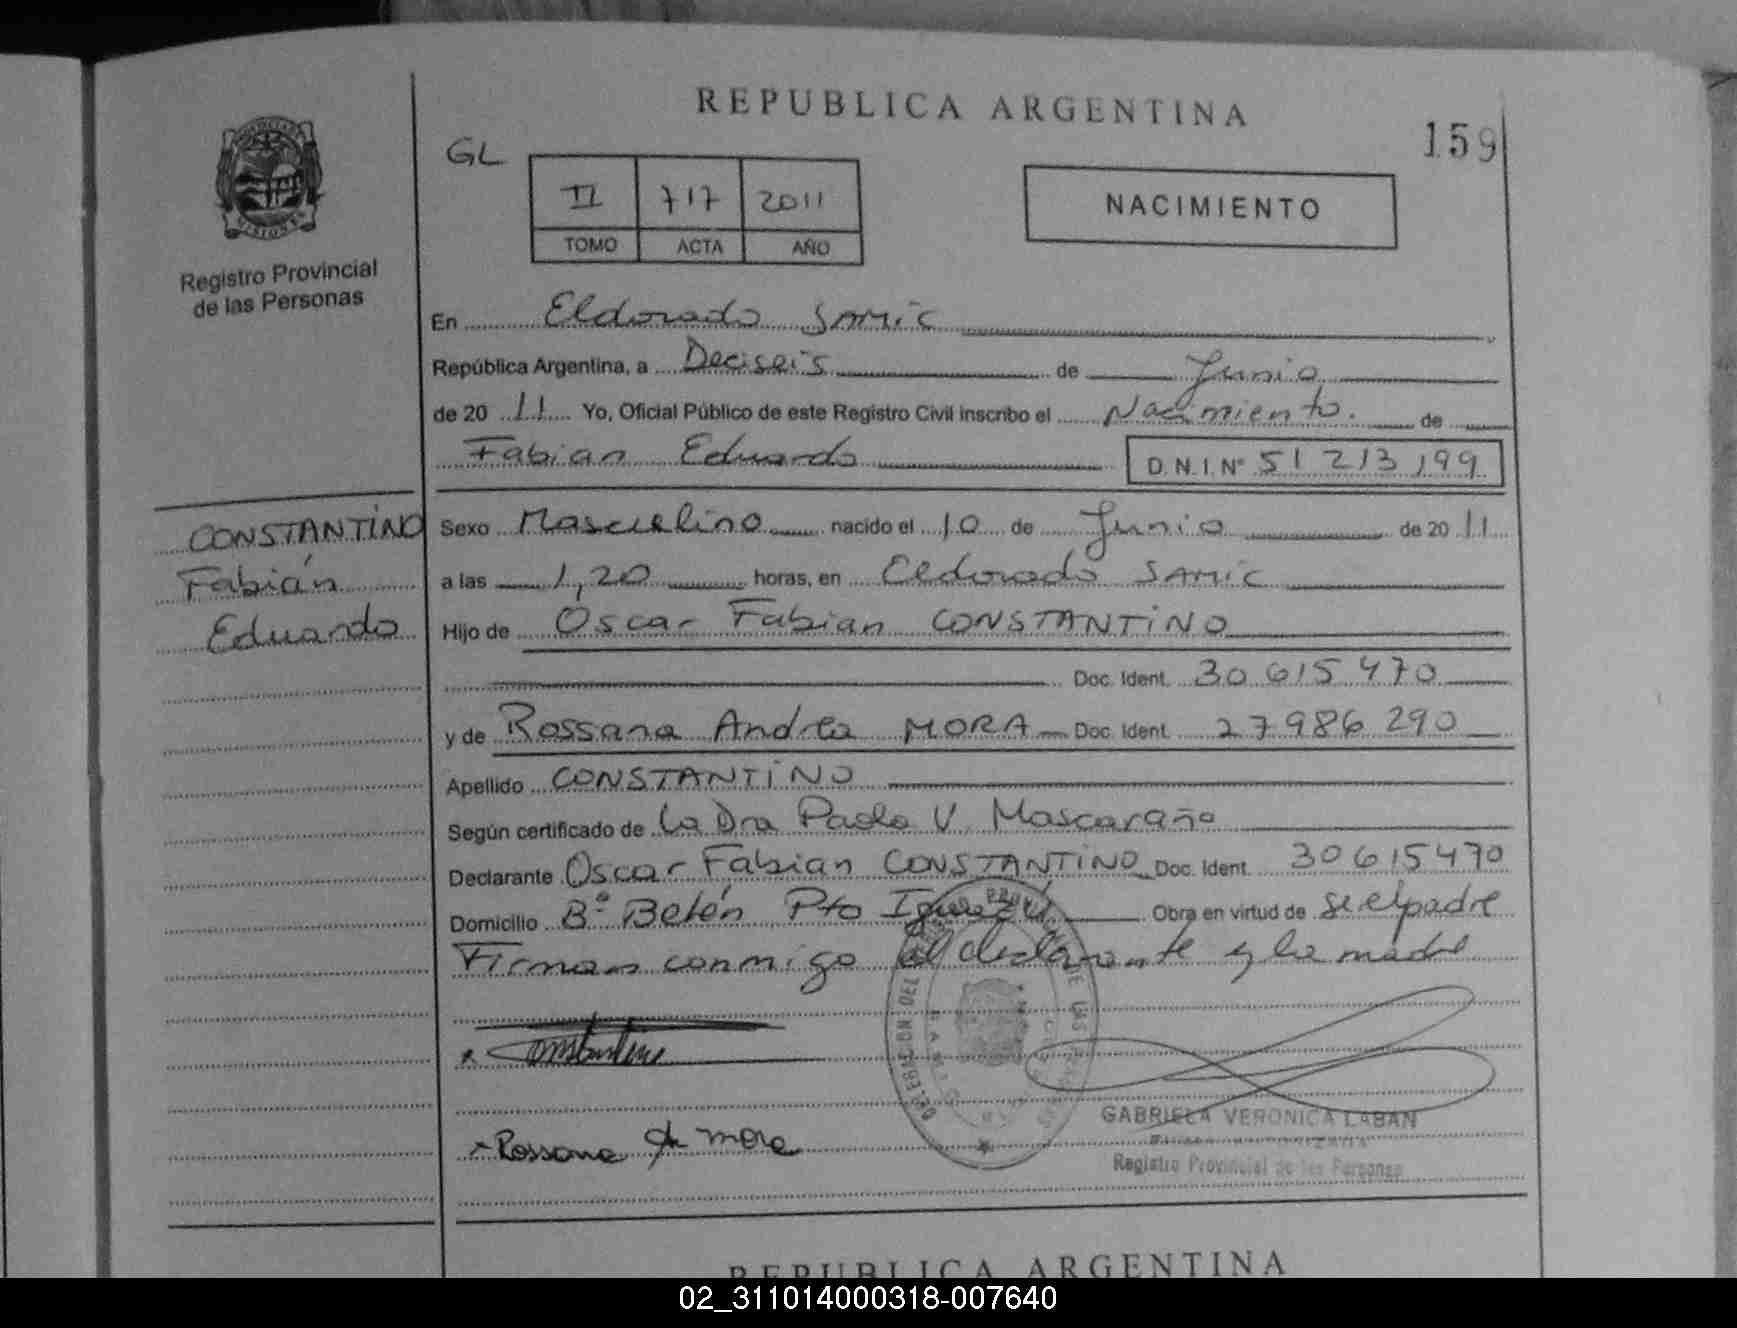 REPUBLICA ARGENTINA
159
GL
II 717 2011
TOMO ACTA AÑO
NACIMIENTO
MISIONES
Registro Provincial
de las Personas
En Eldorado SAMIC
República Argentina, a Deciseis de Junio
de 2011 Yo, Oficial Público de este Registro Civil inscribo el Nacimiento. de
Fabian Eduardo D.N.I. Nº 51 213 199
CONSTANTINO
Fabián
Eduardo
Sexo Masculino nacido el 10 de Junio de 2011
a las 1,20 horas, en Eldorado SAMIC
Hijo de Oscar Fabian CONSTANTINO
Doc. Ident. 30 615 470
y de Rossana Andrea MORA Doc. Ident. 27 986 290
Apellido CONSTANTINO
Según certificado de La Dra Paola V. Mascaraño
Declarante Oscar Fabian CONSTANTINO Doc. Ident. 30 615 470
Domicilio Bº Belén Pto Iguazú Obra en virtud de se el padre
Firman conmigo el declarante y la madre
Constantino
Rossana A. Mora
GABRIELA VERONICA LABAN
Registro Provincial de las Personas
REPUBLICA ARGENTINA
02_311014000318-007640